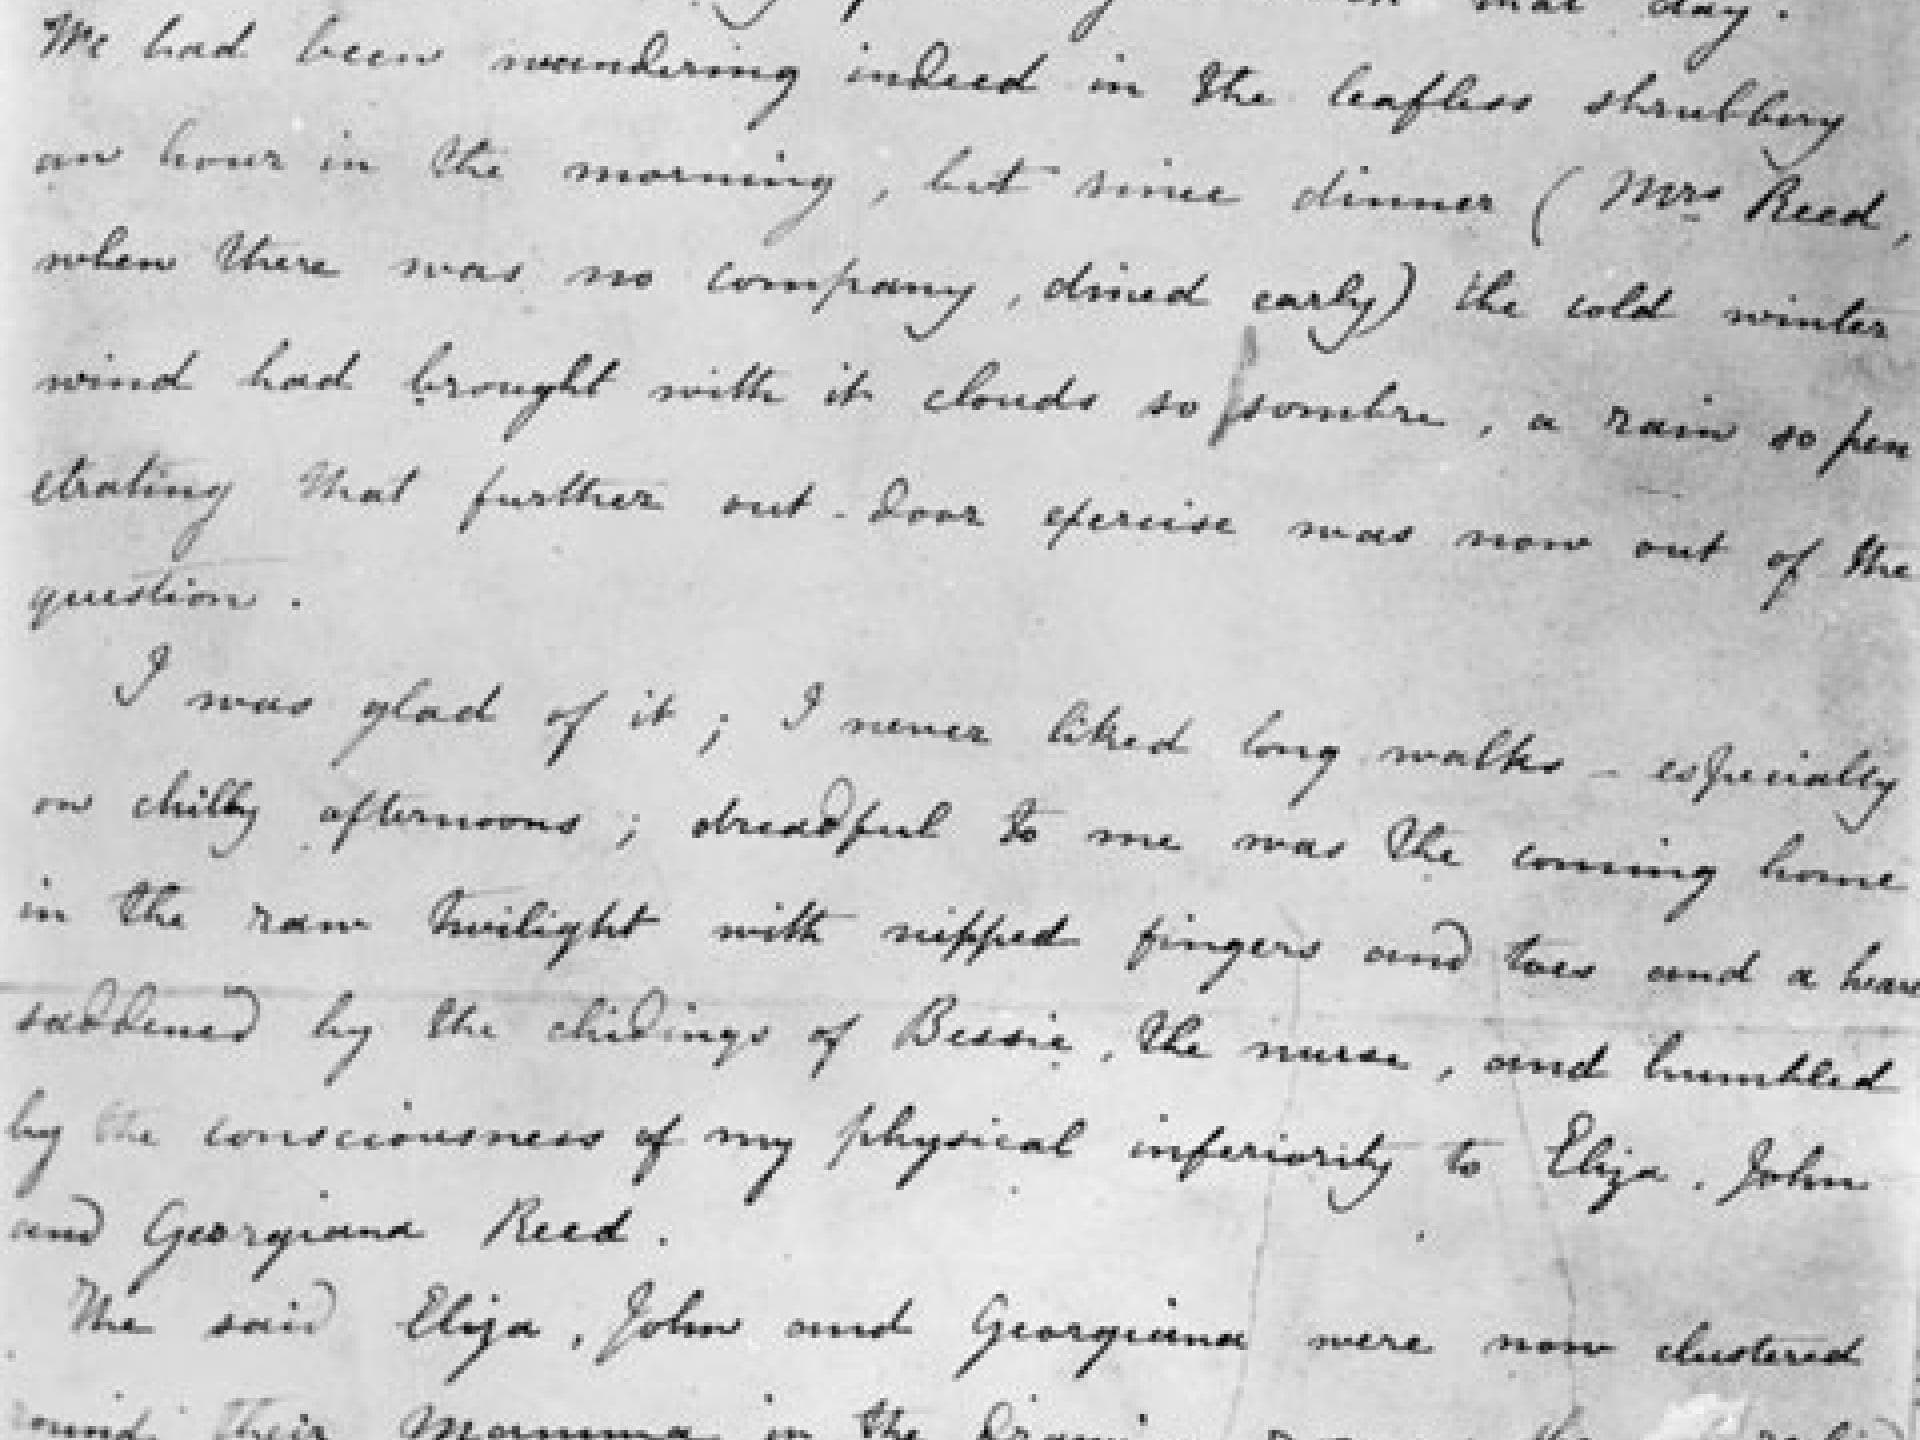 that day.
We had been wandering indeed in the leafless shrubbery
an hour in the morning, but since dinner (Mrs Reed,
when there was no company, dined early) the cold winter
wind had brought with it clouds so sombre, a rain so pen
etrating that further out-door exercise was now out of the
question.
I was glad of it; I never liked long walks - especially
on chilly afternoons; dreadful to me was the coming home
in the raw twilight with nipped fingers and toes and a hear
saddened by the chidings of Bessie, the nurse, and humbled
by the consciousness of my physical inferiority to Eliza, John
and Georgiana Reed.
The said Eliza, John and Georgiana were now clustered
round their Mamma in the